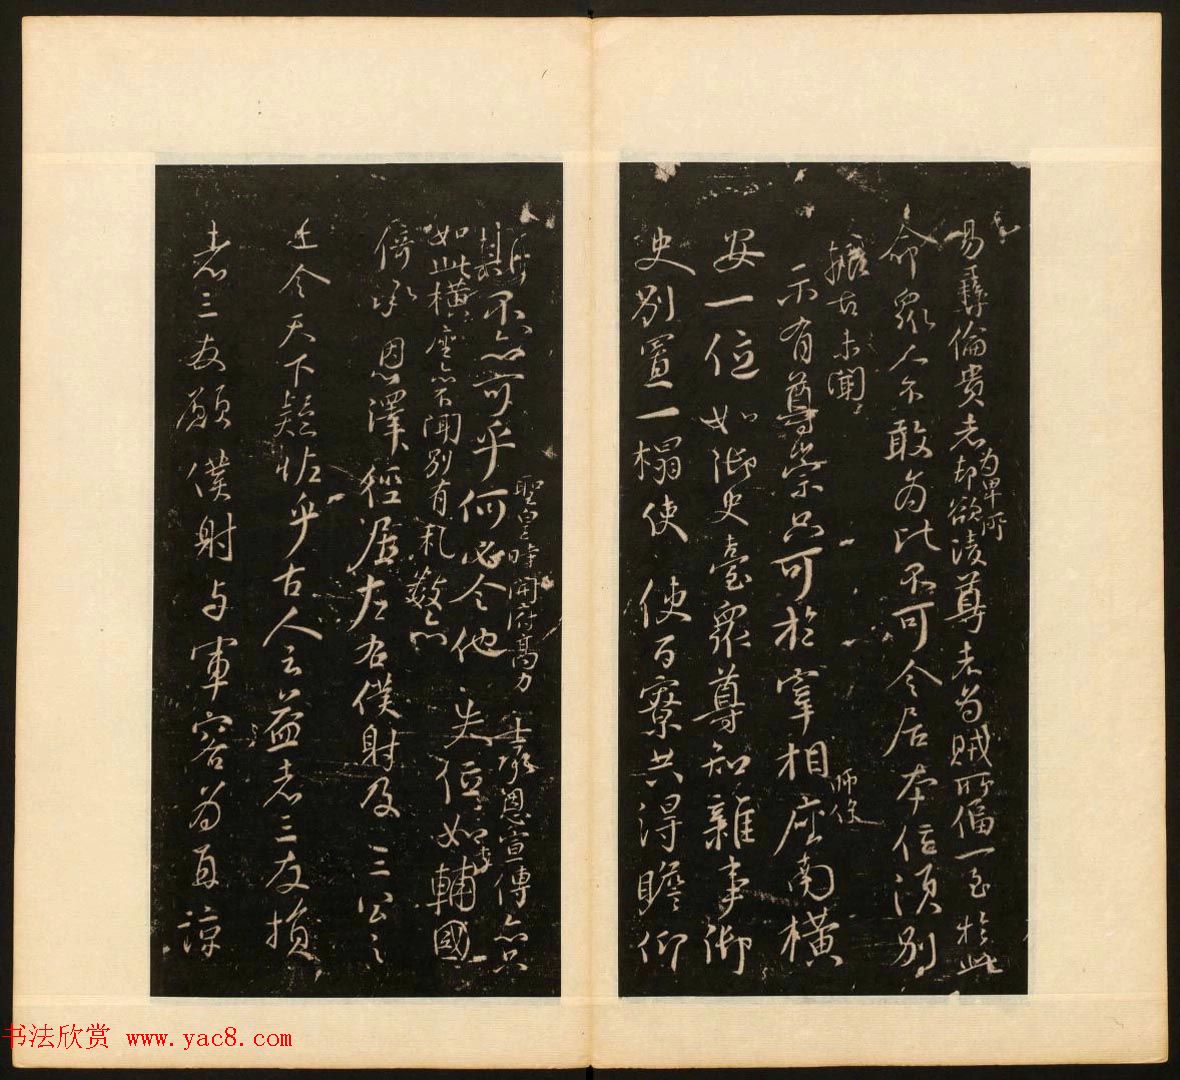 易彝倫貴者為卑所
却欲漬尊者為賊所偪一至於此
命眾人不敢為比不可令居本位須別
振古未聞
示有尊崇只可於宰相師保座南橫
安一位如御史臺眾尊知雜事御
史別置一榻使使百寮共得瞻仰
不亦可乎何必令他失位
聖皇時開府高力士承恩宣傳亦只
如此橫座亦不聞別有禮數亦
如李輔國
倚承恩澤徑居左右僕射及三公之
上令天下疑怪乎古人云益者三友損
者三友願僕射与軍容為直諒
書法欣赏 www.yac8.com